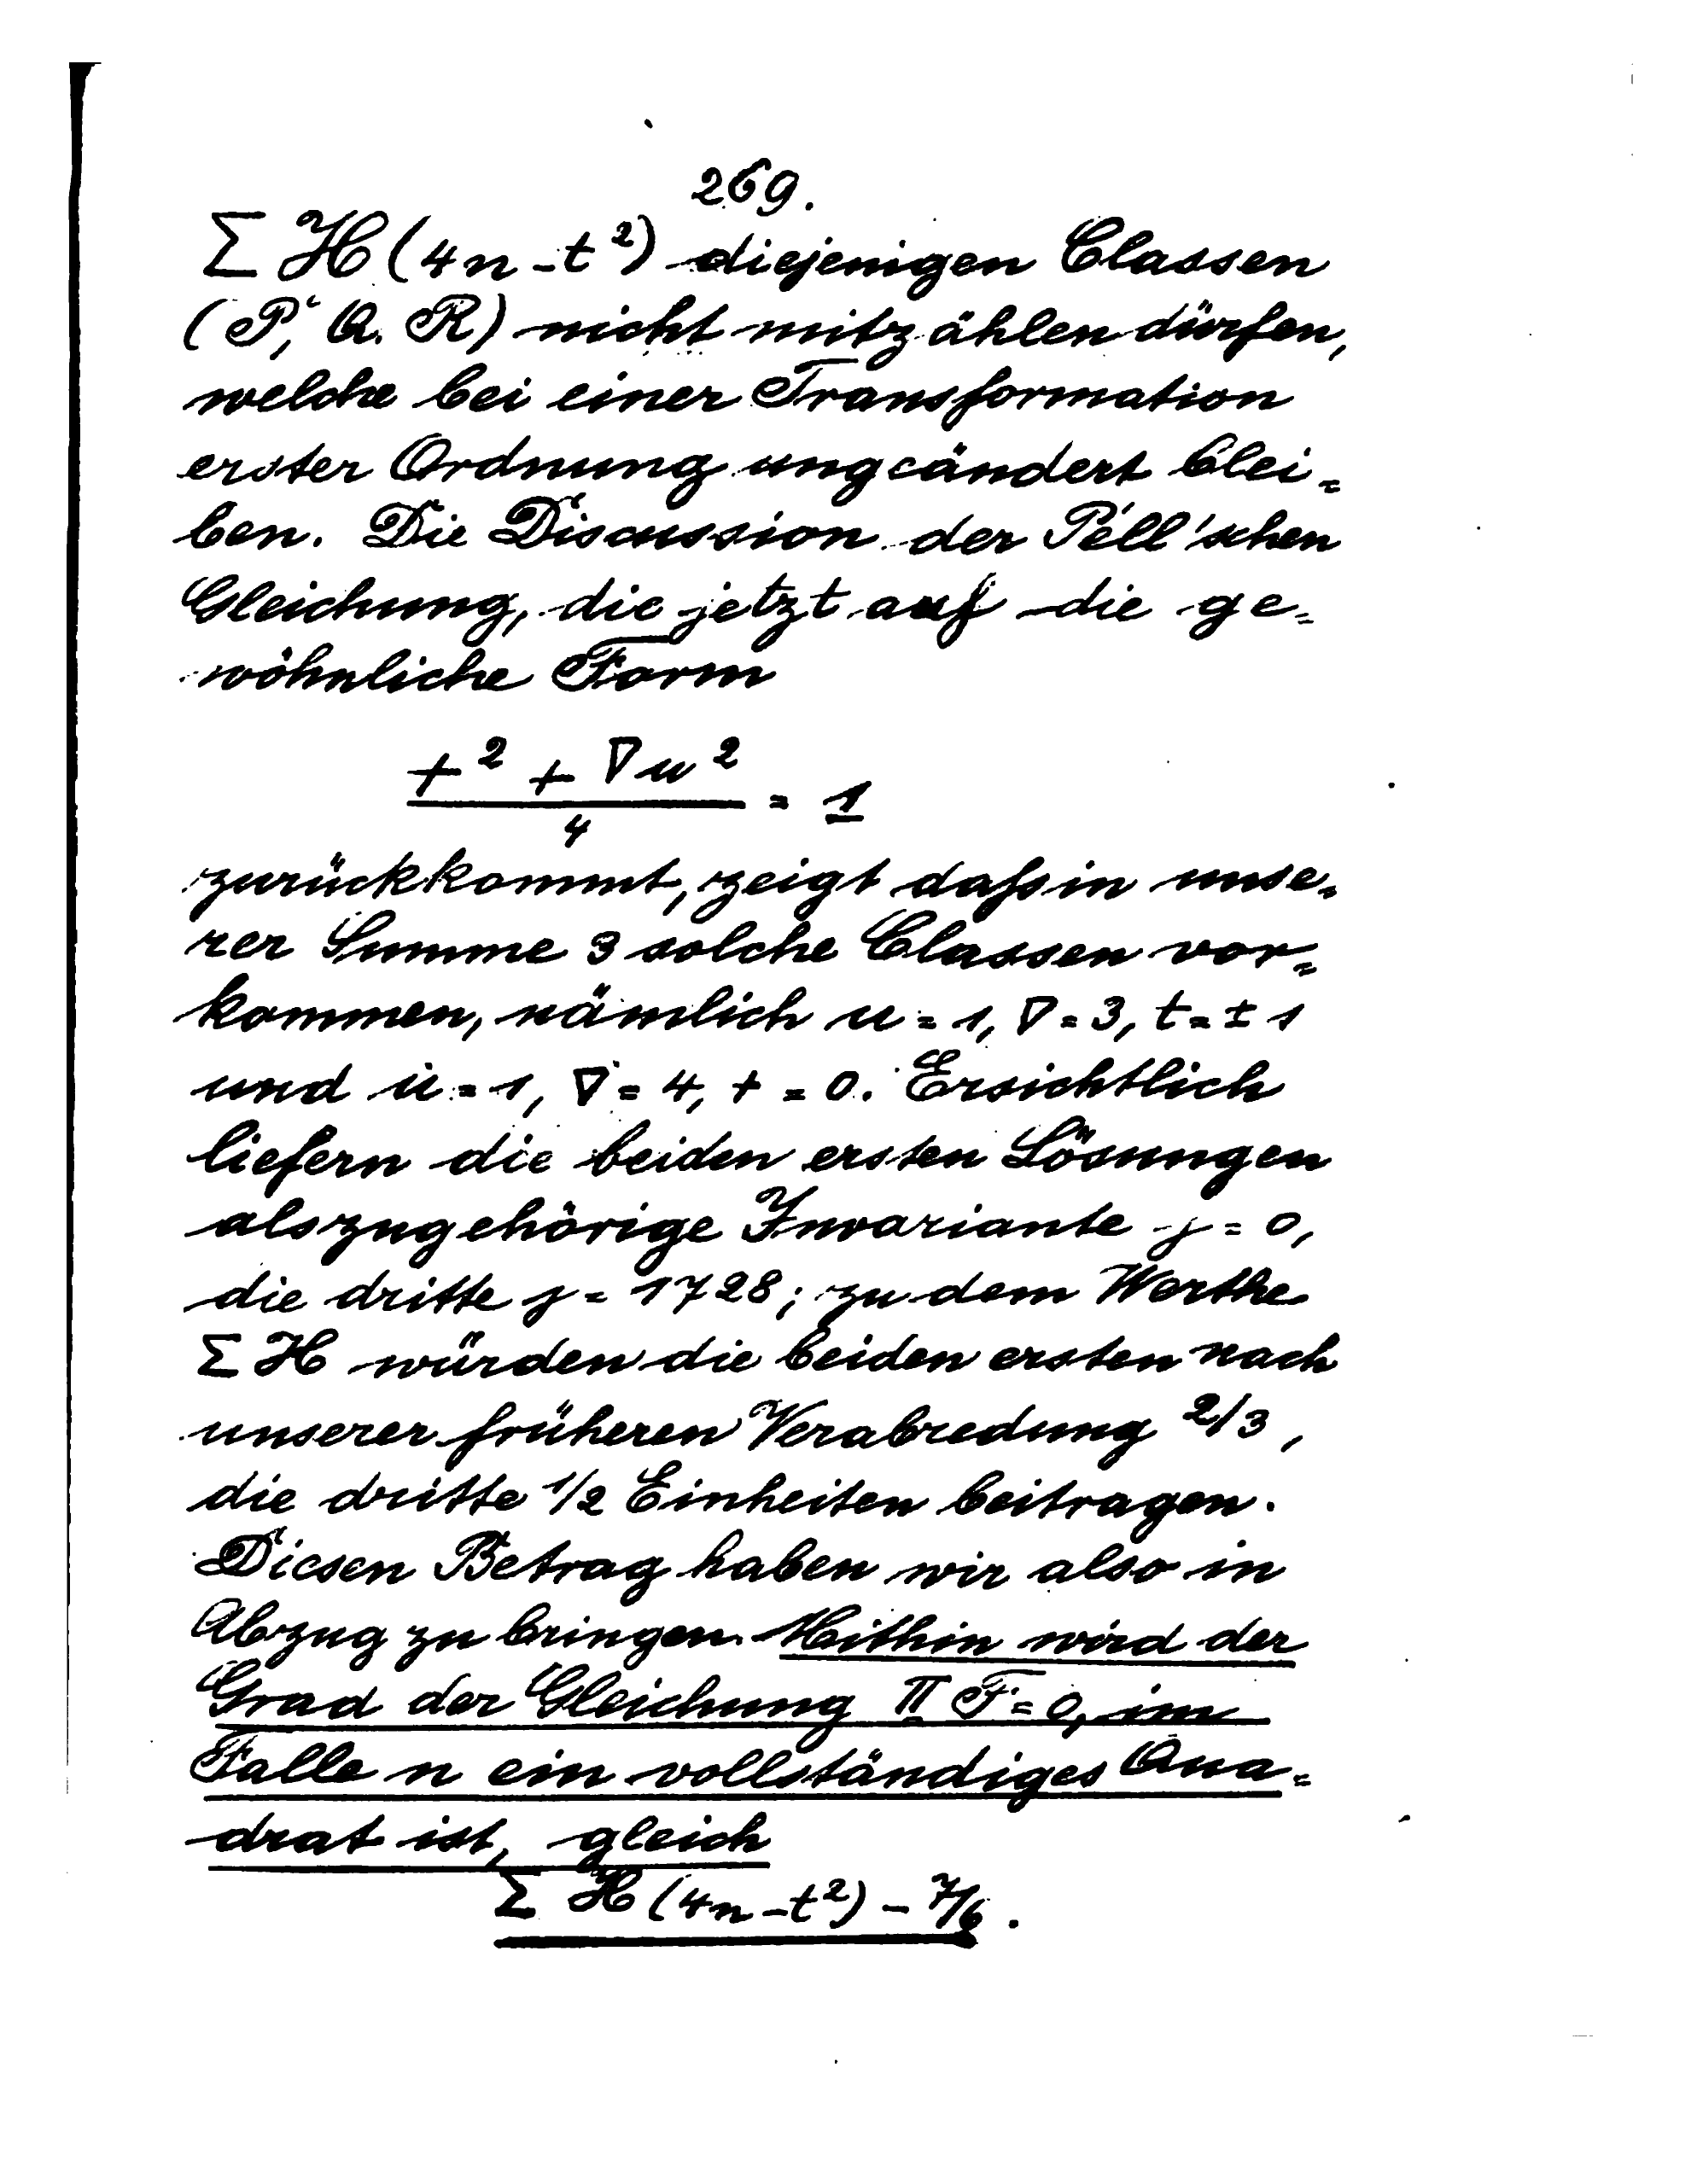 269.
Σ H (4n - t²) diejenigen Classen
(P, Q. R) nicht mitzählen dürfen,
welche bei einer Transformation
erster Ordnung ungeändert blei=
ben. Die Discussion der Pell'schen
Gleichung, die jetzt auf die ge=
wöhnliche Form
t² + ∇u² / 4 = 1
zurückkommt, zeigt daß in unse=
rer Summe 3 solche Classen vor=
kommen, nämlich u = 1, ∇ = 3, t = ± 1
und u = 1, ∇ = 4, t = 0. Ersichtlich
liefern die beiden ersten Lösungen
als zugehörige Invariante j = 0,
die dritte j = 1728; zu dem Werthe
Σ H würden die beiden ersten nach
unserer früheren Verabredung 2/3,
die dritte 1/2 Einheiten beitragen.
Diesen Betrag haben wir also in
Abzug zu bringen. Mithin wird der
Grad der Gleichung Π F = 0, im
Falle n ein vollständiges Qua=
drat ist, gleich
Σ H (4n - t²) - 7/6.